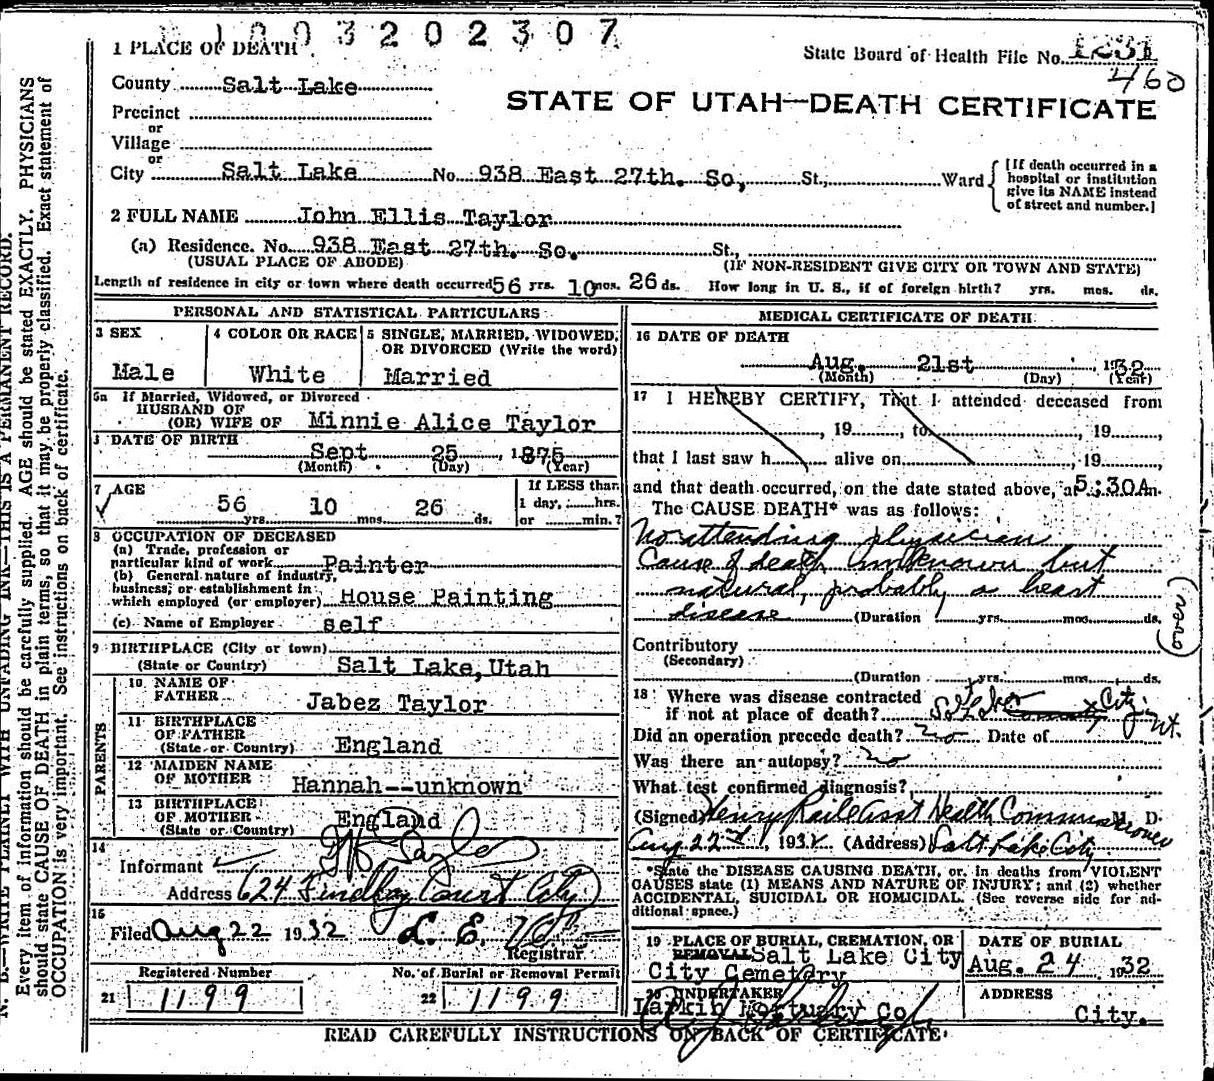 1003202307
1 PLACE OF DEATH
State Board of Health File No. 1231
460
County Salt Lake
STATE OF UTAH—DEATH CERTIFICATE
Precinct
or
Village
or
City Salt Lake No. 938 East 27th. So, St., Ward
[If death occurred in a hospital or institution give its NAME instead of street and number.]
2 FULL NAME John Ellis Taylor
(a) Residence. No. 938 East 27th. So. St.,
(USUAL PLACE OF ABODE) (IF NON-RESIDENT GIVE CITY OR TOWN AND STATE)
Length of residence in city or town where death occurred 56 yrs. 10 mos. 26 ds. How long in U. S., if of foreign birth? yrs. mos. ds.
PERSONAL AND STATISTICAL PARTICULARS
3 SEX
Male
4 COLOR OR RACE
White
5 SINGLE, MARRIED, WIDOWED,
OR DIVORCED (Write the word)
Married
5a If Married, Widowed, or Divorced
HUSBAND OF
(OR) WIFE OF Minnie Alice Taylor
DATE OF BIRTH
Sept 25, 1875
(Month) (Day) (Year)
7 AGE
56 yrs. 10 mos. 26 ds.
If LESS than
1 day, hrs.
or min.?
8 OCCUPATION OF DECEASED
(a) Trade, profession or
particular kind of work Painter
(b) General nature of industry,
business, or establishment in
which employed (or employer) House Painting
(c) Name of Employer self
9 BIRTHPLACE (City or town)
(State or Country) Salt Lake, Utah
PARENTS
10 NAME OF
FATHER Jabez Taylor
11 BIRTHPLACE
OF FATHER
(State or Country) England
12 MAIDEN NAME
OF MOTHER Hannah--unknown
13 BIRTHPLACE
OF MOTHER
(State or Country) England
14
Informant Taylor
Address 624 Findlay Court City
15
Filed Aug 22 1932 L. E.
Registrar
Registered Number
21 1199
No. of Burial or Removal Permit
22 1199
MEDICAL CERTIFICATE OF DEATH
16 DATE OF DEATH
Aug. 21st, 1932
(Month) (Day) (Year)
17 I HEREBY CERTIFY, That I attended deceased from
, 19 , to , 19 ,
that I last saw h alive on , 19 ,
and that death occurred, on the date stated above, at 5:30A m.
The CAUSE DEATH* was as follows:
No attending physician
Cause of death unknown but
natural, probably a heart
disease (Duration yrs. mos. ds.
(over)
Contributory
(Secondary)
(Duration yrs. mos. ds.
18 Where was disease contracted
if not at place of death? City Ut.
Did an operation precede death? no Date of
Was there an autopsy? no
What test confirmed diagnosis?
(Signed) Henry Raile Asst Health Commissioner M. D.
Aug 22nd, 1932 (Address) Salt Lake City
*State the DISEASE CAUSING DEATH, or, in deaths from VIOLENT
CAUSES state (1) MEANS AND NATURE OF INJURY; and (2) whether
ACCIDENTAL, SUICIDAL OR HOMICIDAL. (See reverse side for ad-
ditional space.)
19 PLACE OF BURIAL, CREMATION, OR
REMOVAL Salt Lake City
City Cemetery
DATE OF BURIAL
Aug. 24 1932
20 UNDERTAKER
Larkin Mortuary Co.
ADDRESS
City.
READ CAREFULLY INSTRUCTIONS ON BACK OF CERTIFICATE
N. B.—WRITE PLAINLY WITH UNFADING INK—THIS IS A PERMANENT RECORD.
Every item of information should be carefully supplied. AGE should be stated EXACTLY. PHYSICIANS
should state CAUSE OF DEATH in plain terms, so that it may be properly classified. Exact statement of
OCCUPATION is very important. See instructions on back of certificate.